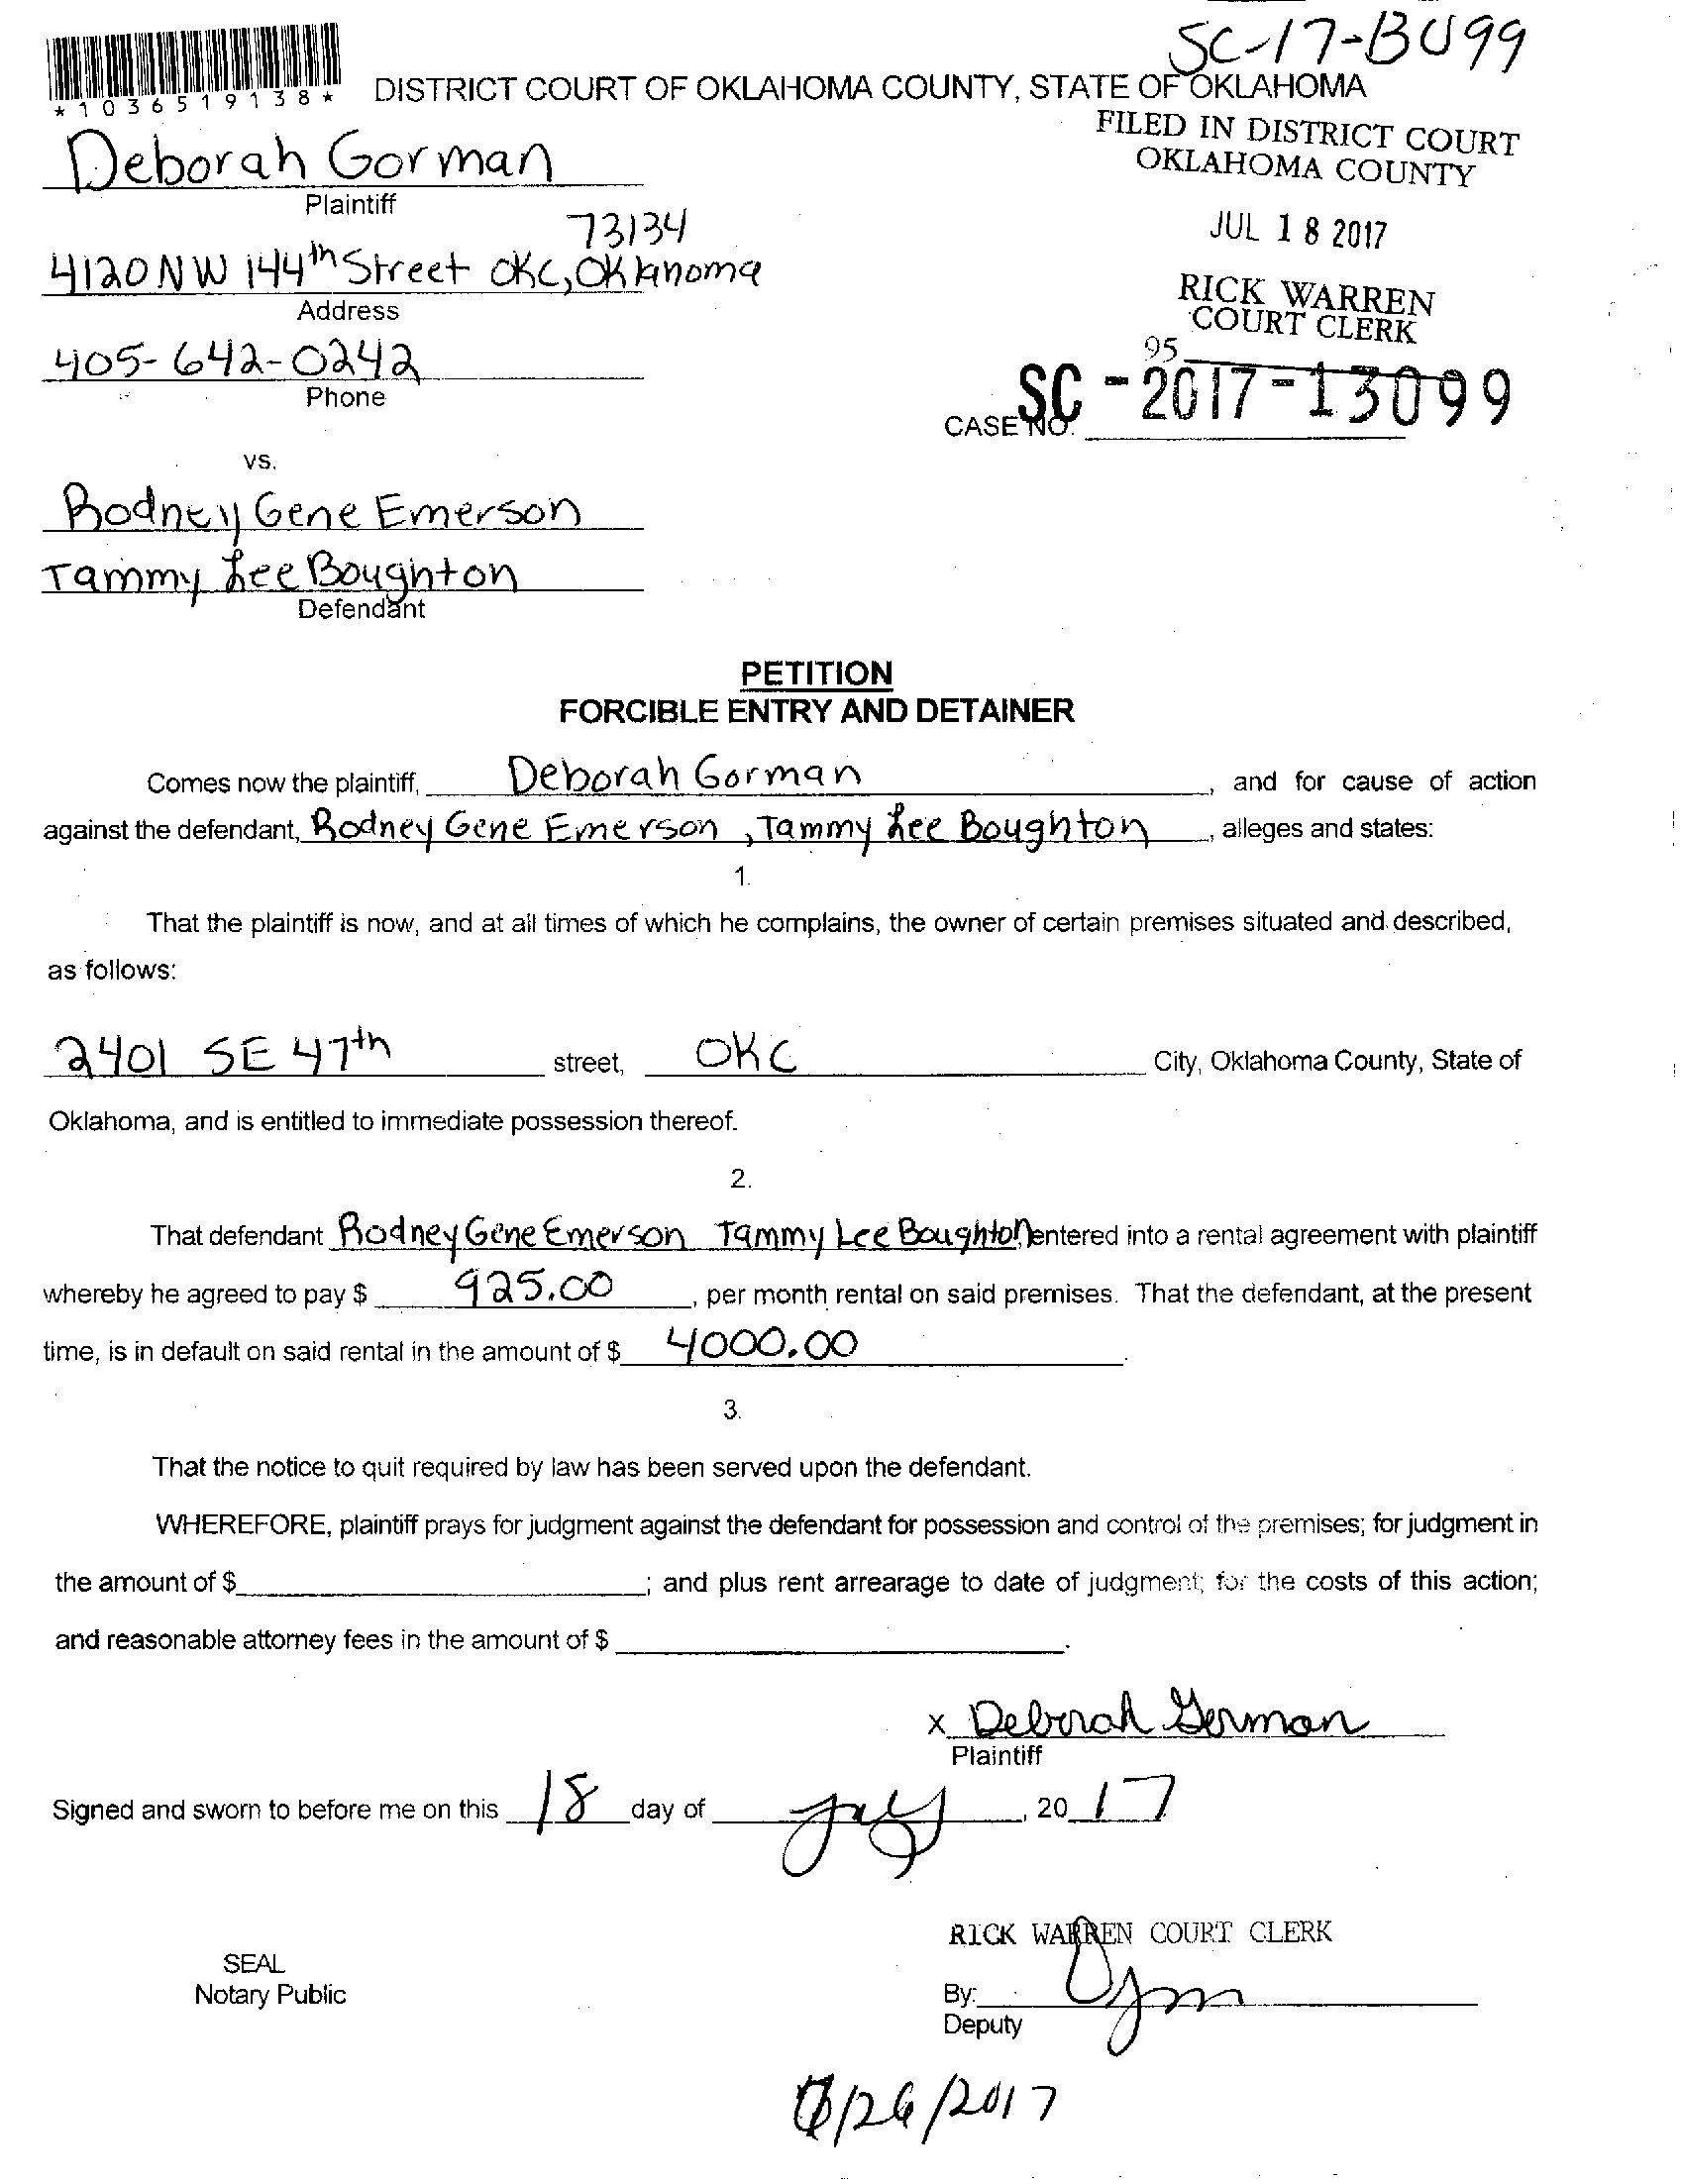 SC-17-13099
*1036519138*
DISTRICT COURT OF OKLAHOMA COUNTY, STATE OF OKLAHOMA
FILED IN DISTRICT COURT
OKLAHOMA COUNTY
Deborah Gorman
Plaintiff
JUL 18 2017
73134
4120 NW 144th Street OKC, Oklahoma
Address
RICK WARREN
COURT CLERK
95
405-642-0242
Phone
CASE NO. SC-2017-13099
vs.
Rodney Gene Emerson
Tammy Lee Boughton
Defendant
PETITION
FORCIBLE ENTRY AND DETAINER
Comes now the plaintiff, Deborah Gorman, and for cause of action
against the defendant, Rodney Gene Emerson, Tammy Lee Boughton, alleges and states:
1.
That the plaintiff is now, and at all times of which he complains, the owner of certain premises situated and described,
as follows:
2401 SE 47th street, OKC City, Oklahoma County, State of
Oklahoma, and is entitled to immediate possession thereof.
2.
That defendant Rodney Gene Emerson Tammy Lee Boughton, entered into a rental agreement with plaintiff
whereby he agreed to pay $ 925.00, per month rental on said premises. That the defendant, at the present
time, is in default on said rental in the amount of $ 4000.00.
3.
That the notice to quit required by law has been served upon the defendant.
WHEREFORE, plaintiff prays for judgment against the defendant for possession and control of the premises; for judgment in
the amount of $ ; and plus rent arrearage to date of judgment; for the costs of this action;
and reasonable attorney fees in the amount of $ .
x Deborah Gorman
Plaintiff
Signed and sworn to before me on this 18 day of July, 2017
RICK WARREN COURT CLERK
SEAL
Notary Public
By:
Deputy
/26/2017